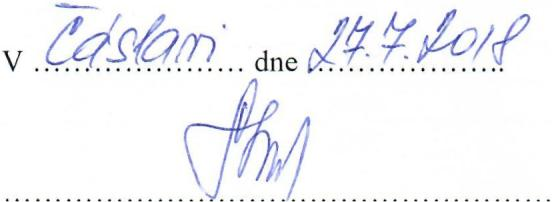 V Čáslavi dne 27.7.2018